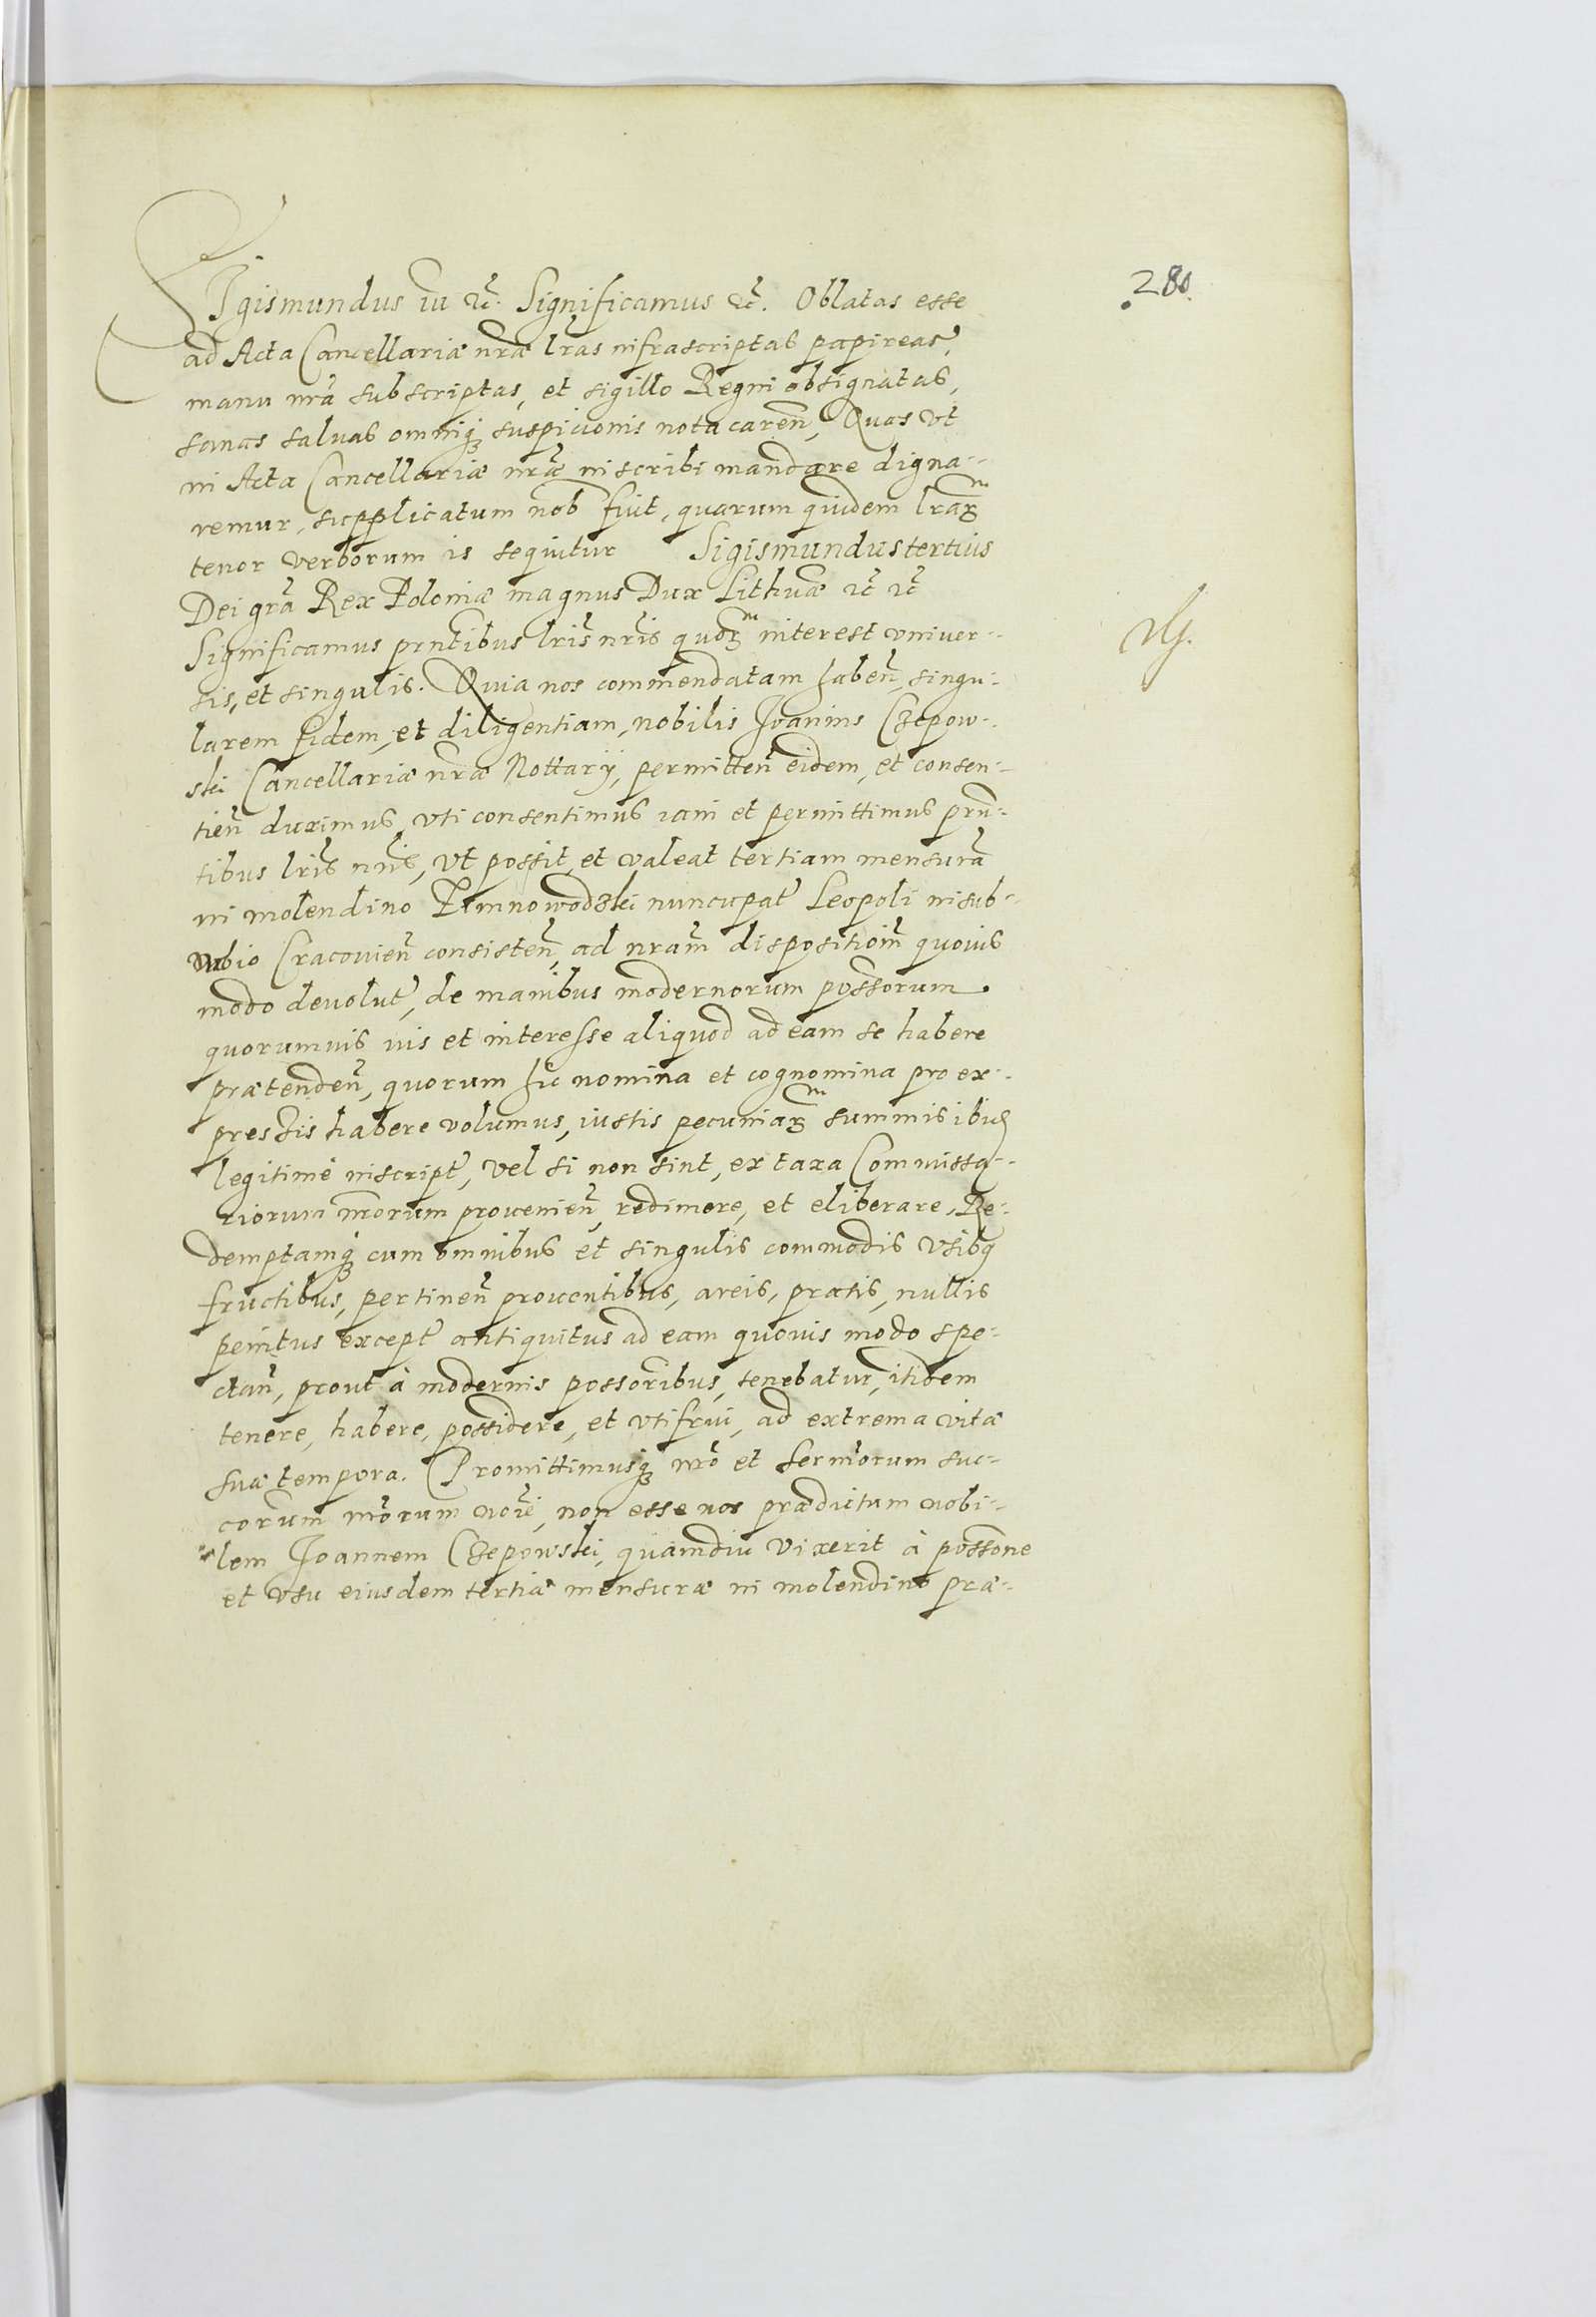 280.
Sigismundus iii etc. Significamus etc. Oblatas esse
ad Acta Cancellariæ nræ lras infrascriptas papireas,
manu nra subscriptas, et sigillo Regni obsignatas,
sanas saluas omniq suspicionis nota caren, Quas vt
in Acta Cancellariæ nræ inscribi mandare digna-
remur, supplicatum nob fuit, quarum quidem lrarum
tenor verborum is sequitur Sigismundus tertius
Dei gra Rex Poloniæ magnus Dux Lithuæ etc etc
Significamus prntibus lris nris quorum interest vniver-
sis, et singulis. Quia nos commendatam haben, singu-
larem fidem, et diligentiam, nobilis Joannis Czepow-
ski Cancellariæ nræ Nottarij, permitten eidem, et consen-
tien duximus, vti consentimus iam et permittimus prn-
tibus lris nris, vt possit, et valeat tertiam mensura
in molendino Zimnowodzki nuncupat Leopoli in sub-
vrbio Cracovien consisten, ad nram dispositioim quovis
modo devolut, de manibus modernorum possorum
quorumvis ius et interesse aliquod ad eam se habere
prætenden, quorum hic nomina et cognomina pro ex-
pressis habere volumus, iustis pecuniarum summis ibid
legitime inscript, vel si non sint, ex taxa Commissa-
riorum nrorum provenien, redimere, et eliberare, Re-
demptamq cum omnibus et singulis commodis vsibq
fructibus, pertinen proventibus, areis, pratis, nullis
penitus except antiquitus ad eam quovis modo spe-
ctan, prout à modernis possoribus, tenebatur, itidem
tenere, habere, possidere, et vti frui, ad extrema vitæ
suæ tempora. Promittimusq nro et Sermorum suc-
corum nrorum noie, non esse nos prædictum nobi-
lem Joannem Czepowski, quamdiu vixerit à possone
et vsu eiusdem tertiæ mensuræ in molendino præ-